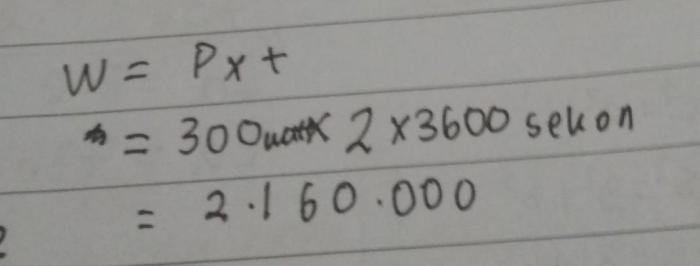 W = P x t
= 300 watt x 2 x 3600 sekon
= 2.160.000